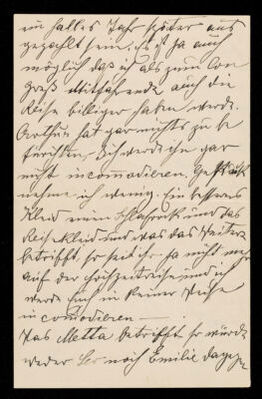 ein halbes Jahr später aus
gezahlt sein. Es ist ja auch
möglich daß ich als zum Con
greß Mitfahrende auch die
Reise billiger haben werde.
Arthur hat gar nichts zu be
fürchten. Ich werde ihn gar
nicht incommodieren. Gepäck
nehme ich wenig. Ein besseres
Kleid einen Schlafrock und das
Reisekleid und was das Weitere
betrifft, so seid Ihr ja nicht mehr
auf der Hochzeitsreise und ich
werde Euch in keiner Weise
incomodieren —
Was Metta betrifft so würde
weder Leo noch Emilie dagegen